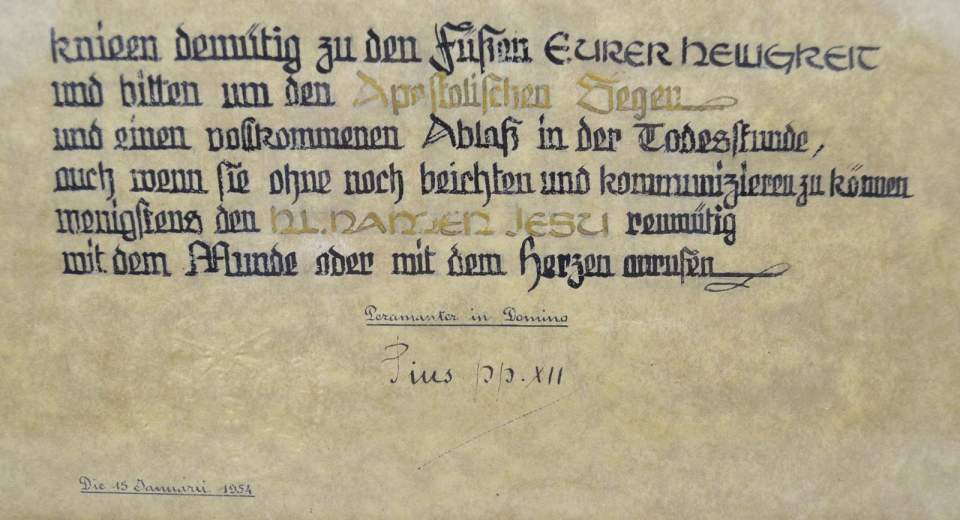 knieen demütig zu den Füßen EURER HEILIGKEIT
und bitten um den Apostolischen Segen
und einen vollkommenen Ablaß in der Todesstunde,
auch wenn sie ohne noch beichten und kommunizieren zu können
wenigstens den HL. NAMEN JESU reumütig
mit dem Munde oder mit dem Herzen anrufen
Peramanter in Domino
Pius pp. XII
Die 15 Januarii 1954